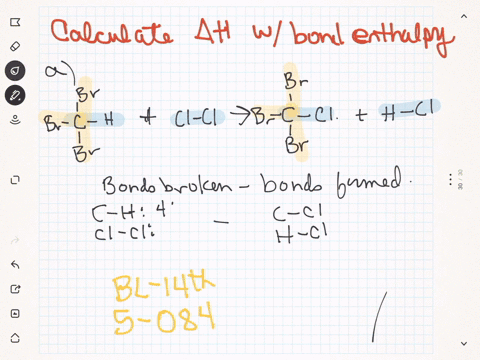 Calculate ΔH w/ bond enthalpy
a)
Br Br
Br-C-H + Cl-Cl → Br-C-Cl. + H-Cl
Br Br
Bonds broken - bonds formed.
C-H: 4' - C-Cl
Cl-Cl: H-Cl
BL-14th
5-084
30 / 30